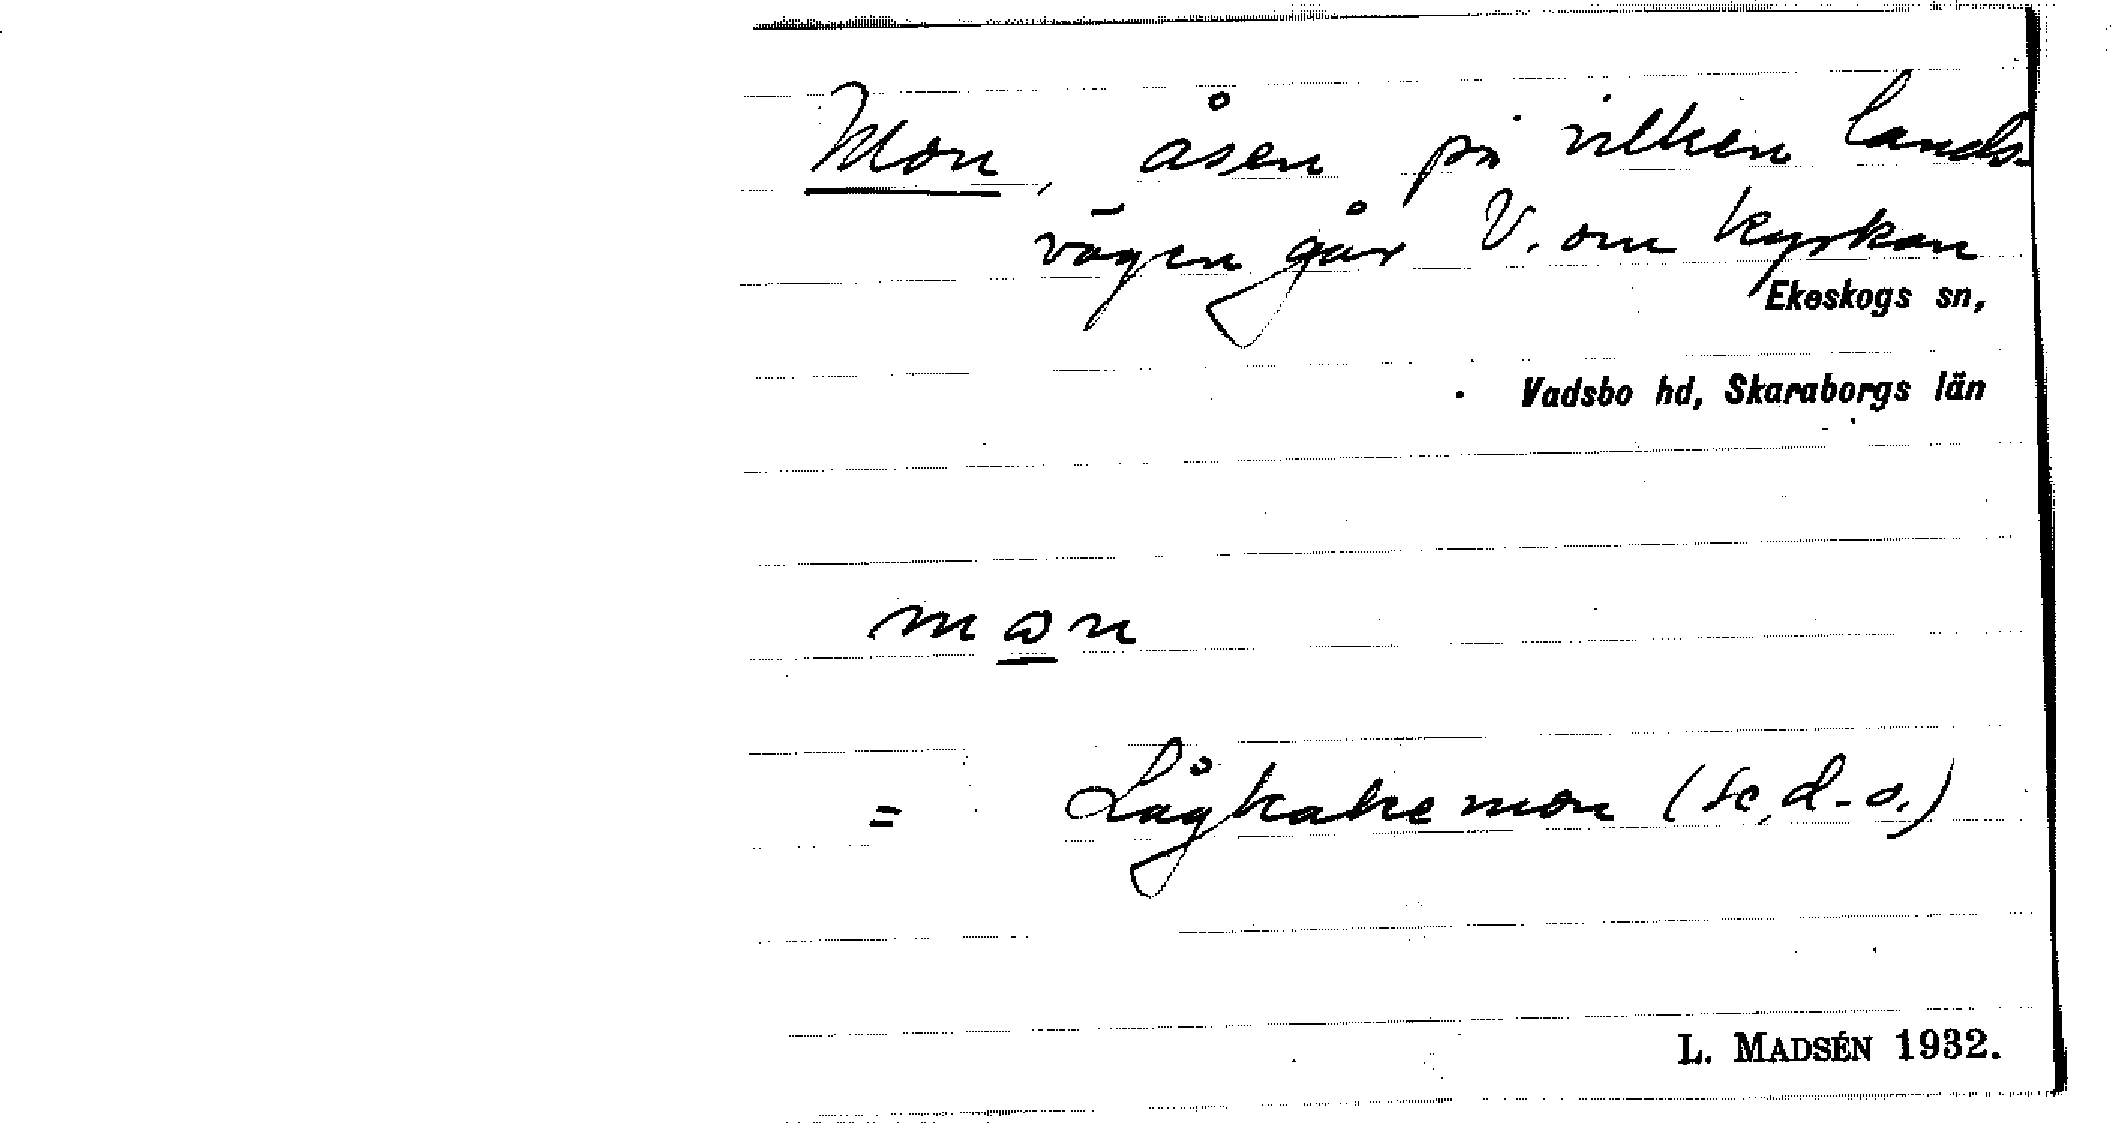 Mon, åsen på vilken lands-
vägen går V. om kyrkan
Ekeskogs sn,
Vadsbo hd, Skaraborgs län
mɷn
= Lågkakemon (se, d. o.)
L. MADSÉN 1932.